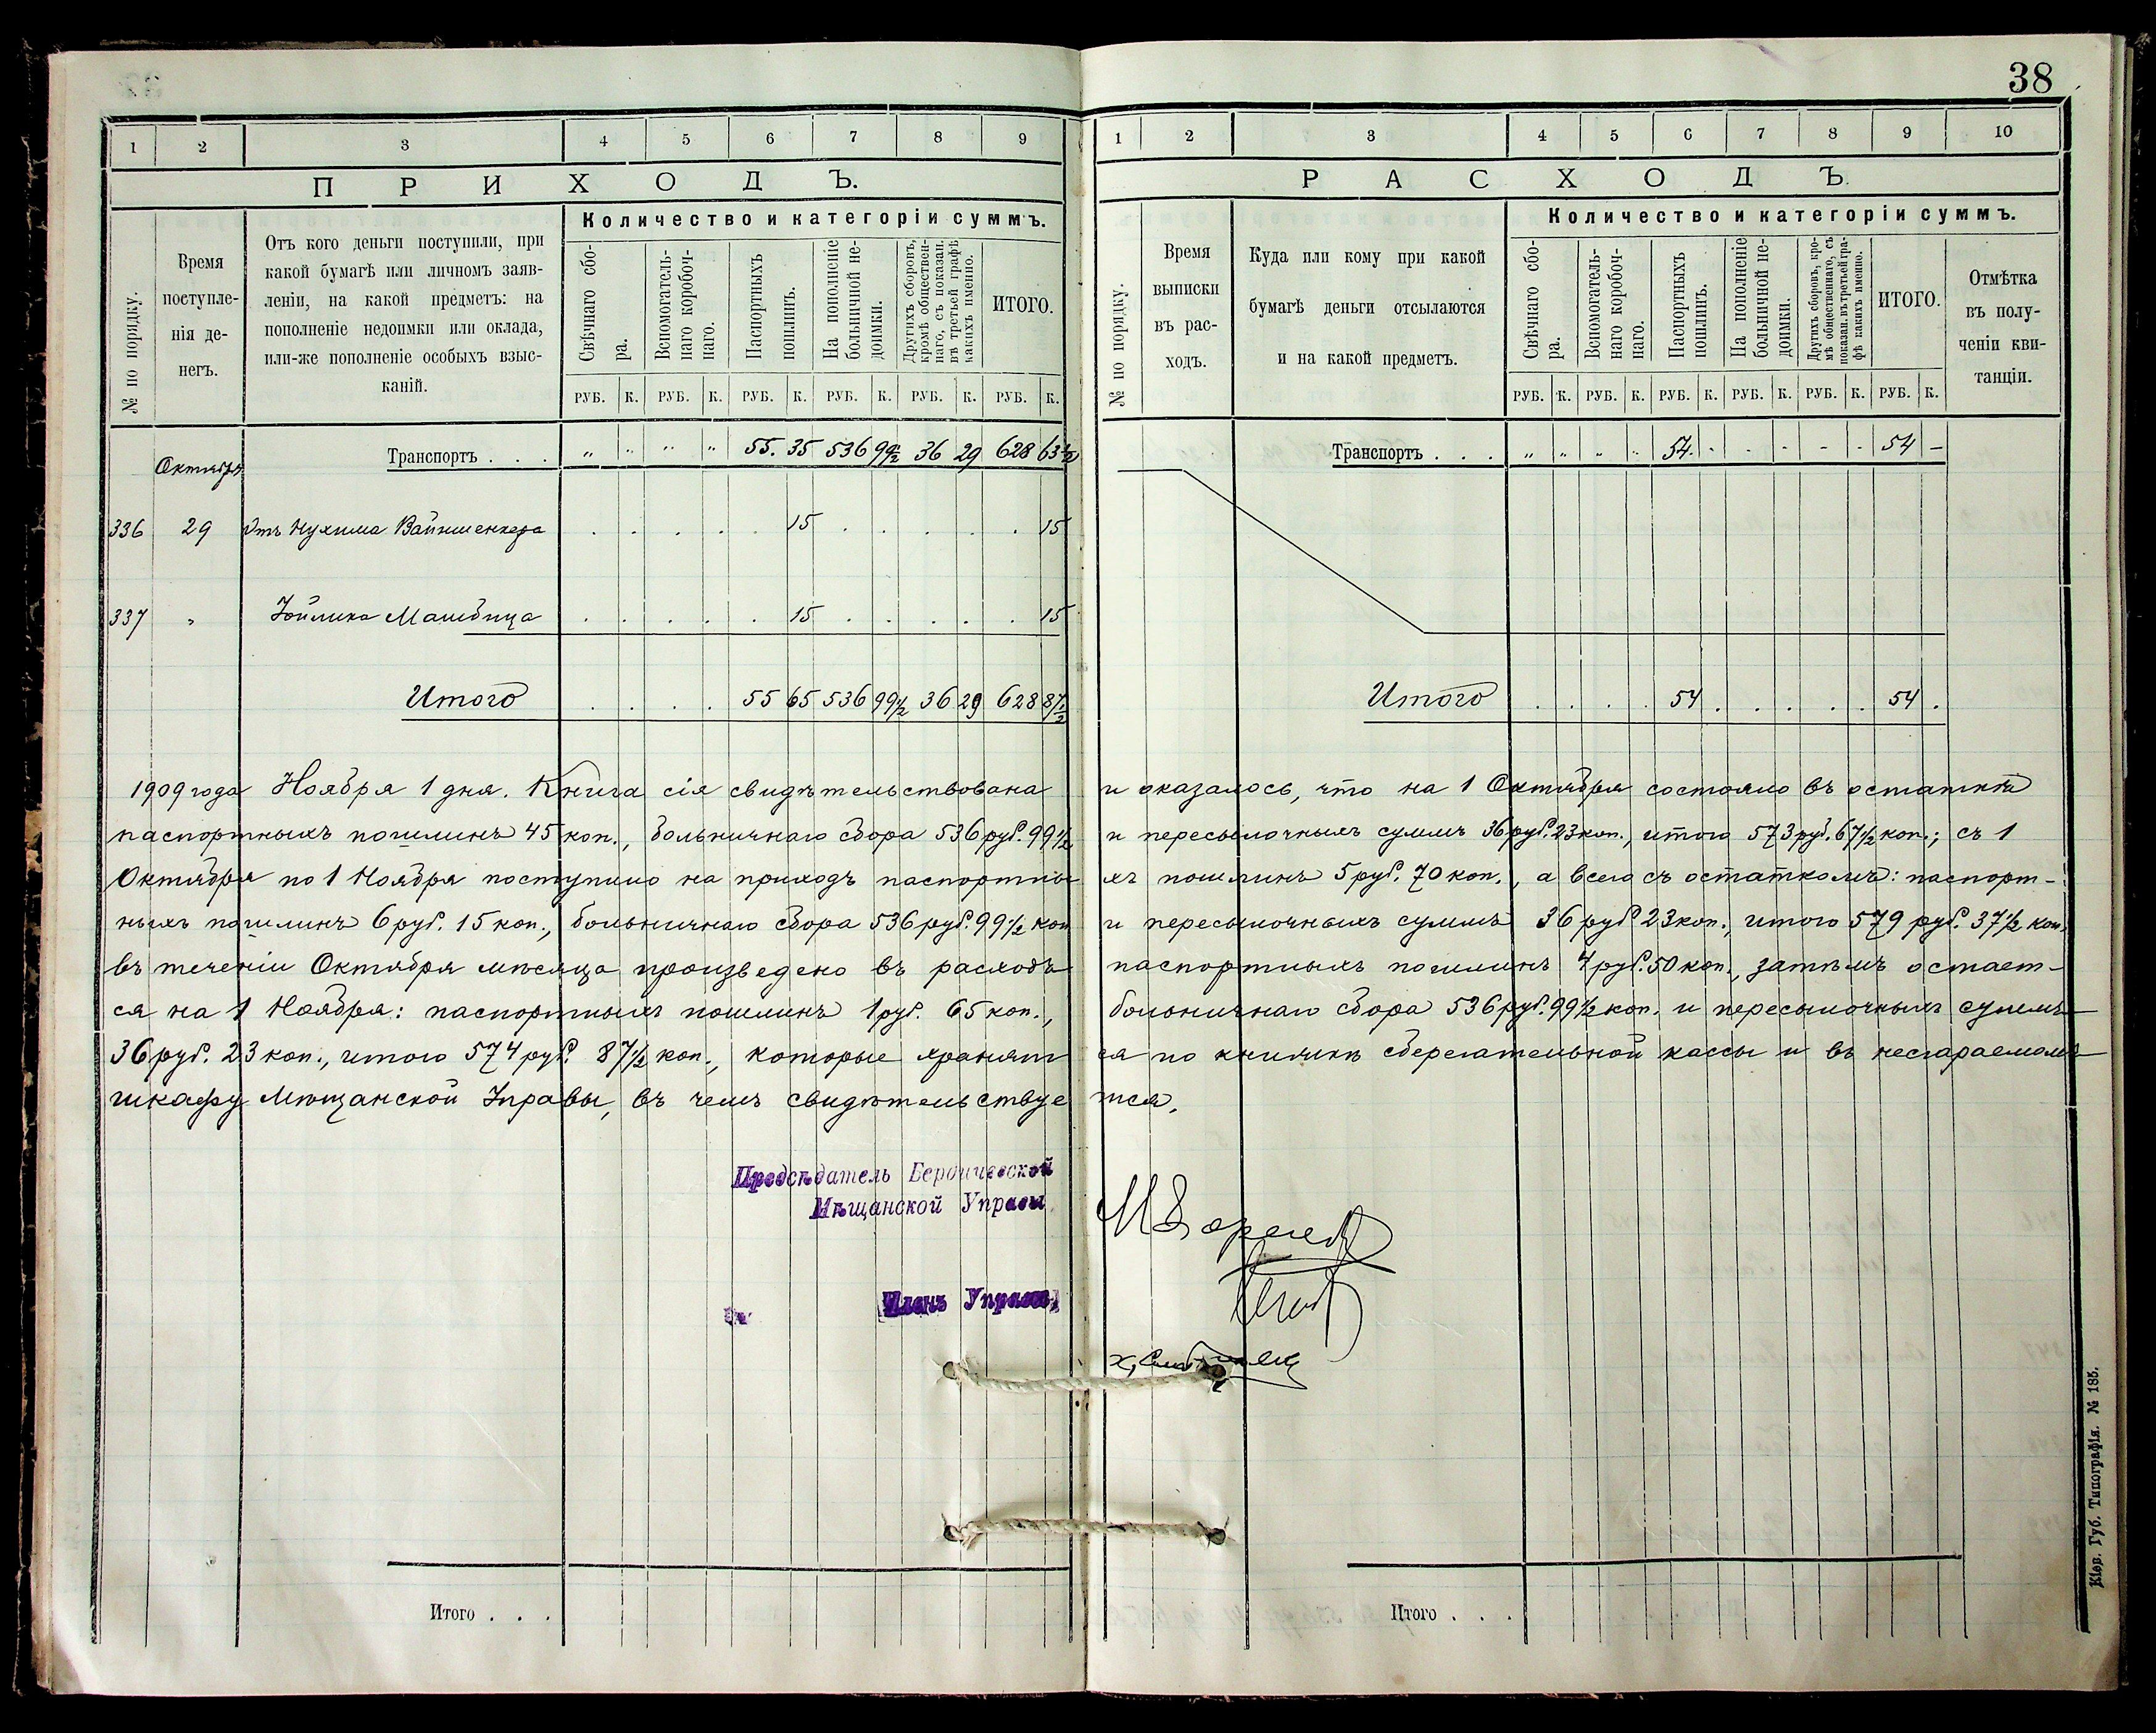 38
1 2 3 4 5 6 7 8 9
ПРИХОДЪ.
№ по порядку.
Время поступле-
нія де-
негъ.
Отъ кого деньги поступили, при
какой бумагѣ или личномъ заяв-
леніи, на какой предметъ: на
пополненіе недоимки или оклада,
или-же пополненіе особыхъ взыс-
каній.
Количество и категоріи суммъ.
Свѣчнаго сбо-
ра.
Вспомогатель-
наго коробоч-
наго.
Паспортныхъ
пошлинъ.
На пополненіе
больничной не-
доимки.
Другихъ сборовъ,
кромѣ обществен-
наго, съ показан.
въ третьей графѣ
какихъ именно.
ИТОГО.
РУБ. К. РУБ. К. РУБ. К. РУБ. К. РУБ. К. РУБ. К.
Транспортъ . . . „ „ „ „ 55. 35 536 99½ 36 29 628 63½
Октября
336 29 Отъ Нухима Вайншенкера 15 15
337 „ Іойлика Машбица 15 15
Итого 55 65 536 99½ 36 29 628 87½
1 2 3 4 5 6 7 8 9 10
РАСХОДЪ
№ по порядку.
Время
выписки
въ рас-
ходъ.
Куда или кому при какой
бумагѣ деньги отсылаются
и на какой предметъ.
Количество и категоріи суммъ.
Свѣчнаго сбо-
ра.
Вспомогатель-
наго коробоч-
наго.
Паспортныхъ
пошлинъ.
На пополненіе
больничной не-
доимки.
Другихъ сборовъ, кро-
мѣ общественнаго, съ
показан. въ третьей гра-
фѣ какихъ именно.
ИТОГО.
Отмѣтка
въ полу-
ченіи кви-
танціи.
РУБ. К. РУБ. К. РУБ. К. РУБ. К. РУБ. К. РУБ. К.
Транспортъ . . . „ „ „ „ 54 . - . - . 54 –
Итого . . . . 54 . . . . . 54 .
1909 года Ноября 1 дня. Книга сія свидѣтельствована и оказалось, что на 1 Октября состояло въ остаткѣ
паспортныхъ пошлинъ 45 коп., больничнаго сбора 536 руб. 99½ и пересылочныхъ суммъ 36 руб. 23 коп., итого 573 руб. 67½ коп.; съ 1
Октября по 1 Ноября поступило на приходъ паспортныхъ пошлинъ 5 руб. 70 коп., а всего съ остаткомъ: паспорт-
ныхъ пошлинъ 6 руб. 15 коп., больничнаго сбора 536 руб. 99½ коп и пересылочныхъ суммъ 36 руб 23 коп., итого 579 руб. 37½ коп.
въ теченіи Октября мѣсяца произведено въ расходъ паспортныхъ пошлинъ 4 руб. 50 коп., затѣмъ остает-
ся на 1 Ноября: паспортныхъ пошлинъ 1 руб. 65 коп., больничнаго сбора 536 руб. 99½ коп. и пересылочныхъ суммъ
36 руб. 23 коп., итого 574 руб. 87½ коп., которые хранятся по книжкѣ сберегательной кассы и въ несгараемомъ
шкафу Мѣщанской Управы, въ чемъ свидѣтельствуется.
Предсѣдатель Бердичевской
Мѣщанской Управы
Членъ Управы
Итого . . .
Итого . . .
Кіев. Губ. Типографія. № 185.